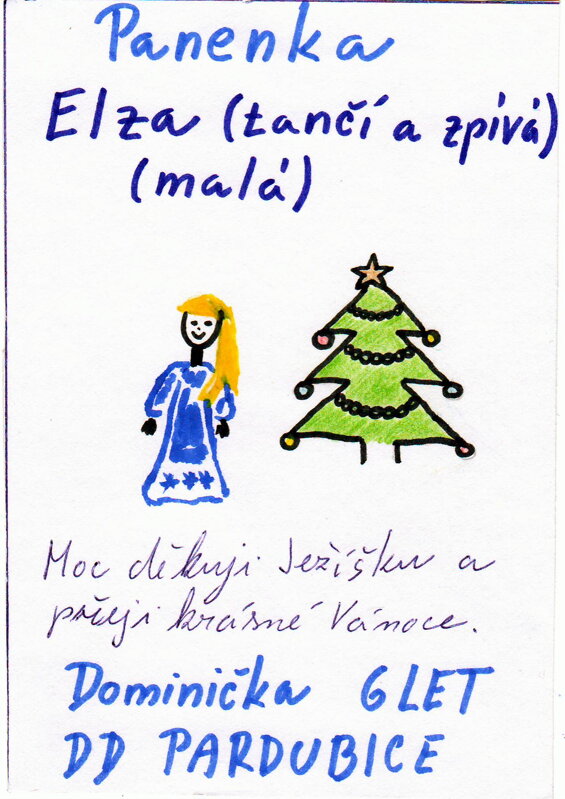 Panenka
Elza (tančí a zpívá)
(malá)
Moc děkuji Ježíšku a
přeji krásné Vánoce.
Dominička 6 LET
DD PARDUBICE